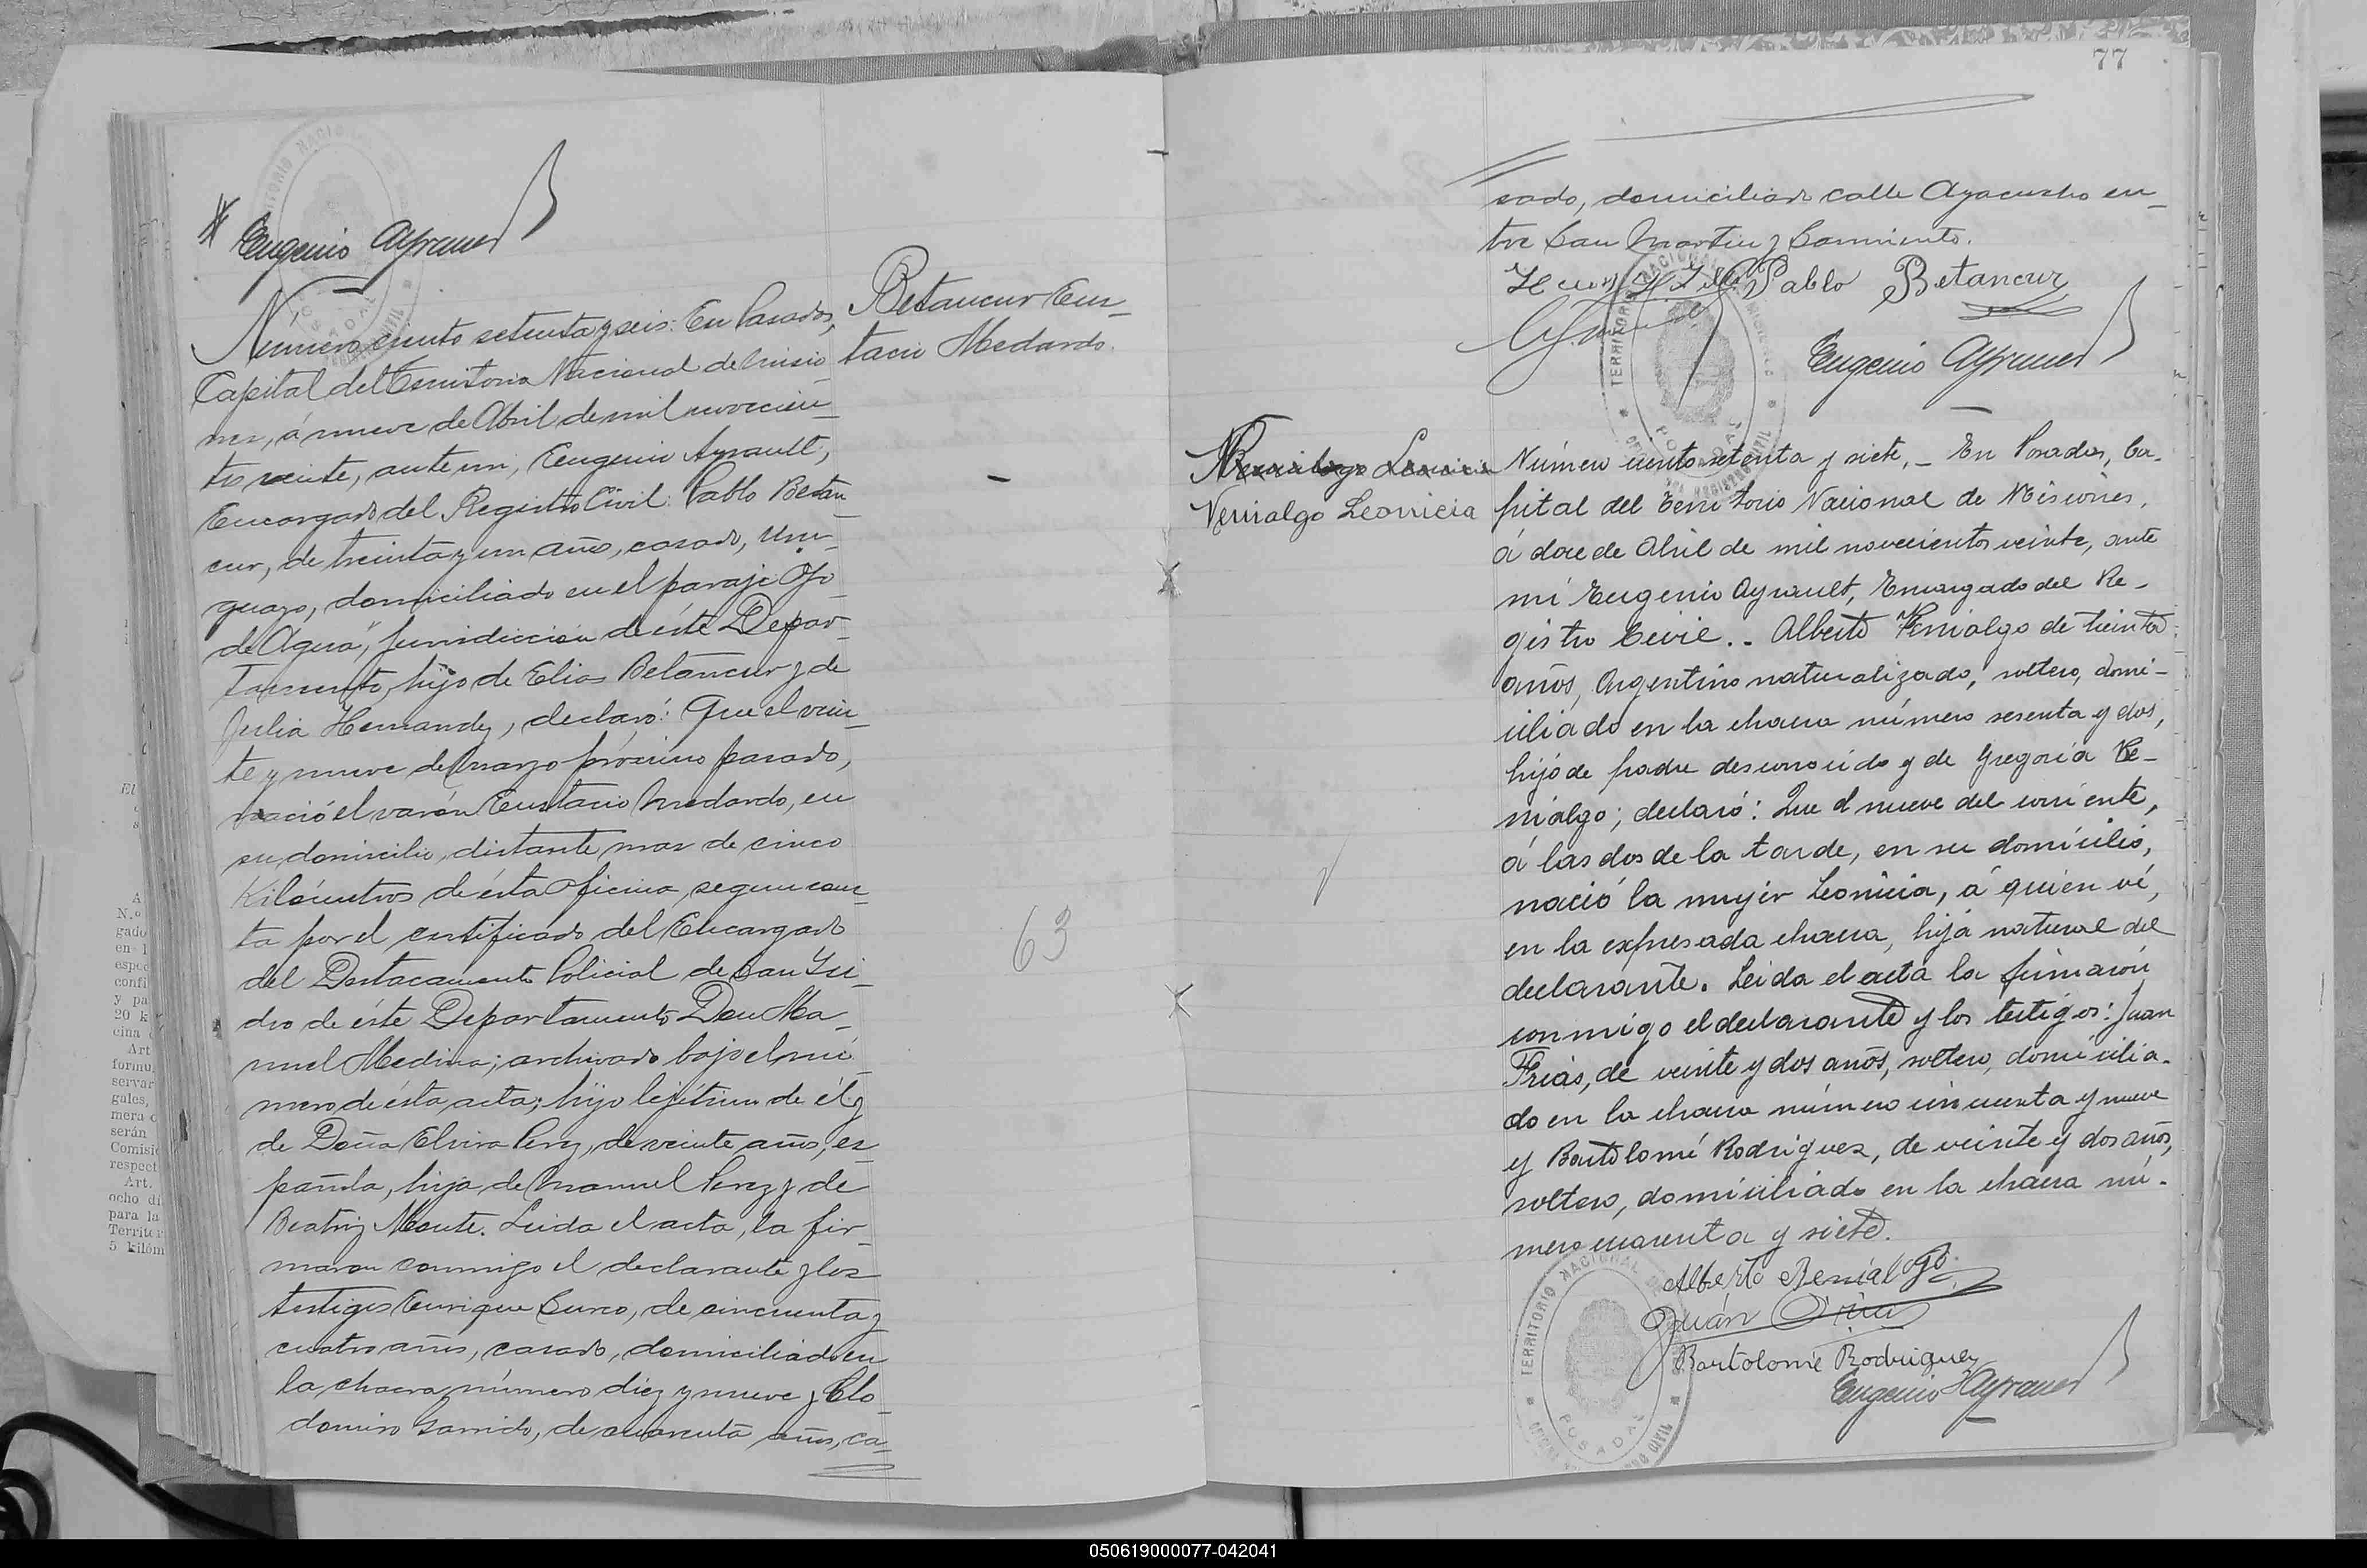 Eugenio Ayrault
Betancur Eus-
tacio Medardo.
Número ciento setenta y seis: En Posadas,
Capital del Territorio Nacional de Misio-
nes, á nueve de Abril de mil novecien-
tos veinte, ante mi, Eugenio Ayrault,
Encargado del Registro Civil: Pablo Betan-
cur, de treinta y un años, casado, Uru-
guayo, domiciliado en el paraje "Ojo
de Agua", jurisdicción de éste Depar-
tamento, hijo de Elias Betancur y de
Julia Hernandez, declaró: Que el vein-
te y nueve de Marzo próximo pasado,
nació el varón Eustacio Medardo, en
su domicilio, distante mas de cinco
Kilómetros de ésta Oficina, segun cons-
ta por el certificado del Encargado
del Destacamento Policial de San Isi-
dro de éste Departamento Don Ma-
nuel Medina; archivado bajo el nú-
mero de ésta acta; hijo lejítimo de él y
de Doña Elvira Perez, de veinte años, es-
pañola, hija de Manuel Perez y de
Beatriz Monte. Leida el acta, la fir-
maron conmigo el declarante y los
testigos Enrique Curco, de cincuenta y
cuatro años, casado, domiciliado en
la chacra número diez y nueve y Clo-
domiro Garrido, de cuarenta años, ca-
63
77
sado, domiciliado calle Ayacucho en-
tre San Martin y Sarmiento.
Pablo Betancur
Eugenio Ayrault
Venialgo Leonicia
Número ciento setenta y siete, - En Posadas, Ca-
pital del Territorio Nacional de Misiones,
á doce de Abril de mil novecientos veinte, ante
mí Eugenio Ayrault, Encargado del Re-
gistro Civil.- Alberto Venialgo de treinta
años, Argentino naturalizado, soltero, domi-
ciliado en la chacra número sesenta y dos,
hijo de padre desconocido y de Gregoria Ve-
nialgo; declaró: Que el nueve del corriente,
á las dos de la tarde, en su domicilio,
nació la mujer Leonicia, á quien ví,
en la expresada chacra, hija natural del
declarante. Leida el acta la firmaron
conmigo el declarante y los testigos: Juan
Frias, de veinte y dos años, soltero, domicilia-
do en la chacra número cincuenta y nueve
y Bartolomé Rodriguez, de veinte y dos años,
soltero, domiciliado en la chacra nú-
mero cuarenta y siete.
Alberto Benialgo
Juán Frias
Bartolomé Rodriguez
Eugenio Ayrault
TERRITORIO NACIONAL
POSADAS
El
A
N.o
gado
en l
espec
confi
y pa
20 k
cina
Art
formu
servar
gales,
mera
serán
Comisi
respect
Art.
ocho di
para la
Territor
5 kilóm
050619000077-042041